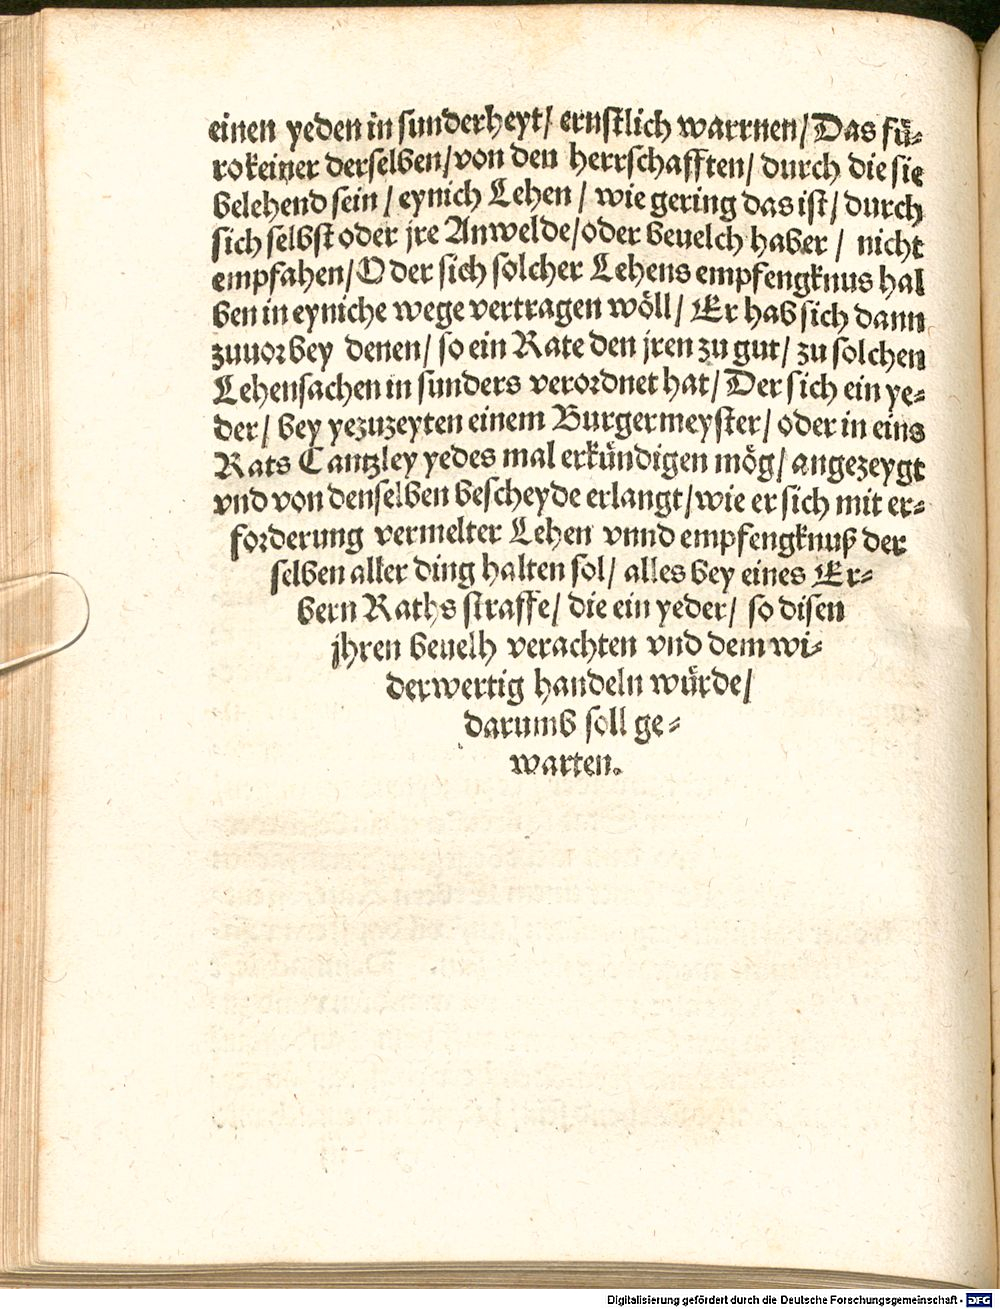 einen yeden in sunderheyt/ ernstlich warrnen/ Das fü-
ro keiner derselben/ von den herrschafften/ durch die sie
belehend sein/ eynich Lehen/ wie gering das ist/ durch
sich selbst oder jre Anwelde/ oder beuelch haber/ nicht
empfahen/ Oder sich solcher Lehens empfengknus hal
ben in eyniche wege vertragen wöll/ Er hab sich dann
zuuor bey denen/ so ein Rate den jren zu gut/ zu solchen
Lehensachen in sunders verordnet hat/ Der sich ein ye-
der/ bey yezuzeyten einem Burgermeyster/ oder in eins
Rats Cantzley yedes mal erkündigen mög/ angezeygt
vnd von denselben bescheyde erlangt/ wie er sich mit er-
forderung vermelter Lehen vnnd empfengknuß der
selben aller ding halten sol/ alles bey eines Er-
bern Raths straffe/ die ein yeder/ so disen
jhren beuelh verachten vnd dem wi-
derwertig handeln würde/
darumb soll ge-
warten.
Digitalisierung gefördert durch die Deutsche Forschungsgemeinschaft - DFG